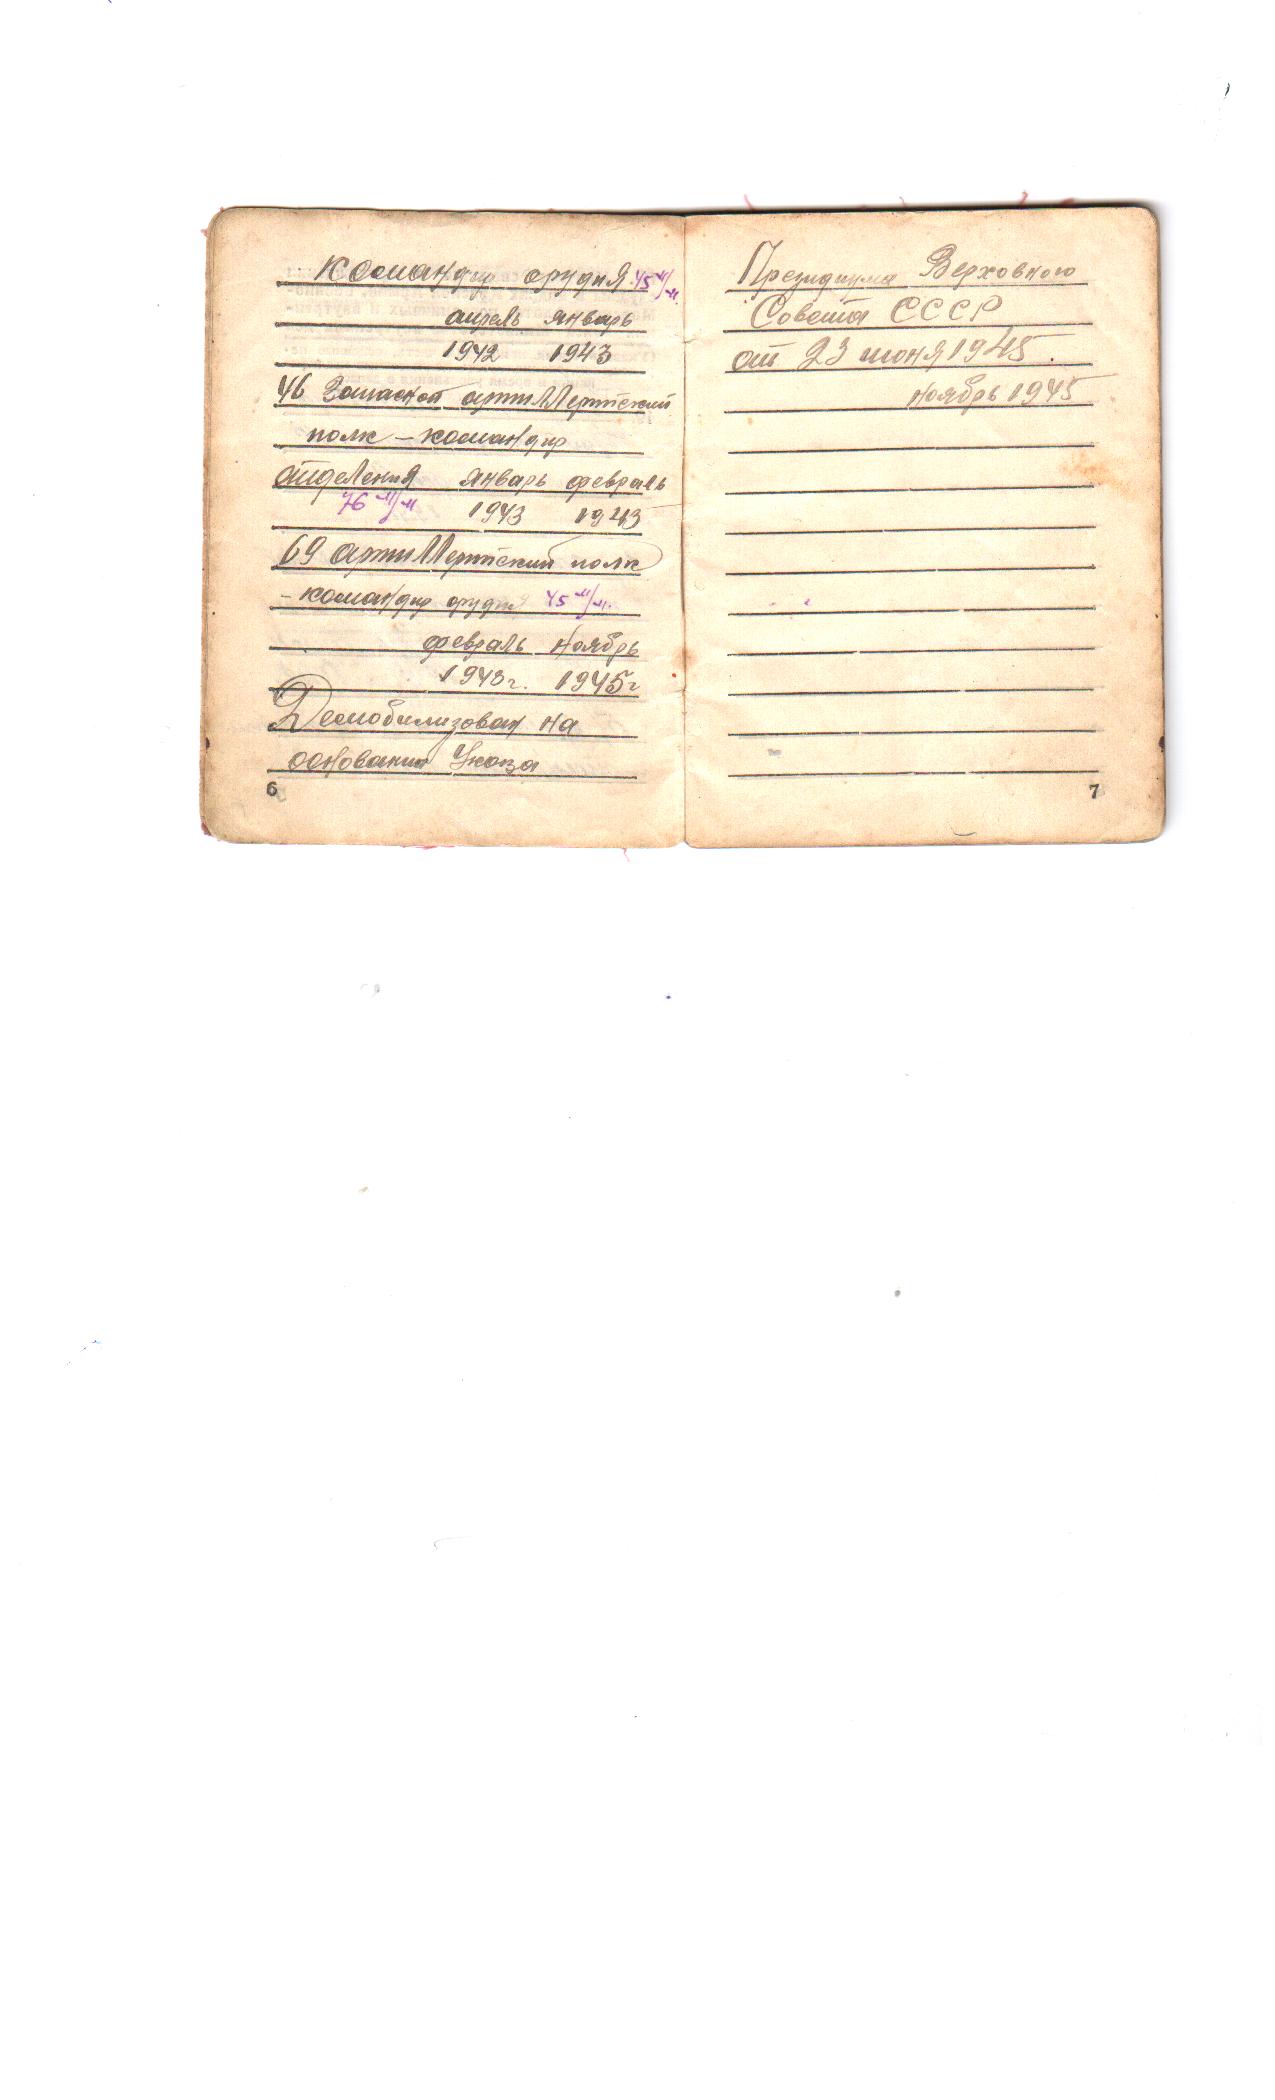 командир орудия 45 м/м
апрель январь
1942 1943
46 Запасной артиллерийский
полк – командир
отделения январь февраль
76 м/м 1943 1943
69 артиллерийский полк
– командир орудия 45 м/м.
февраль ноябрь
1943г. 1945г
Демобилизован на
основании Указа
6
Президиума Верховного
Совета СССР
от 23 июня 1945.
ноябрь 1945
7